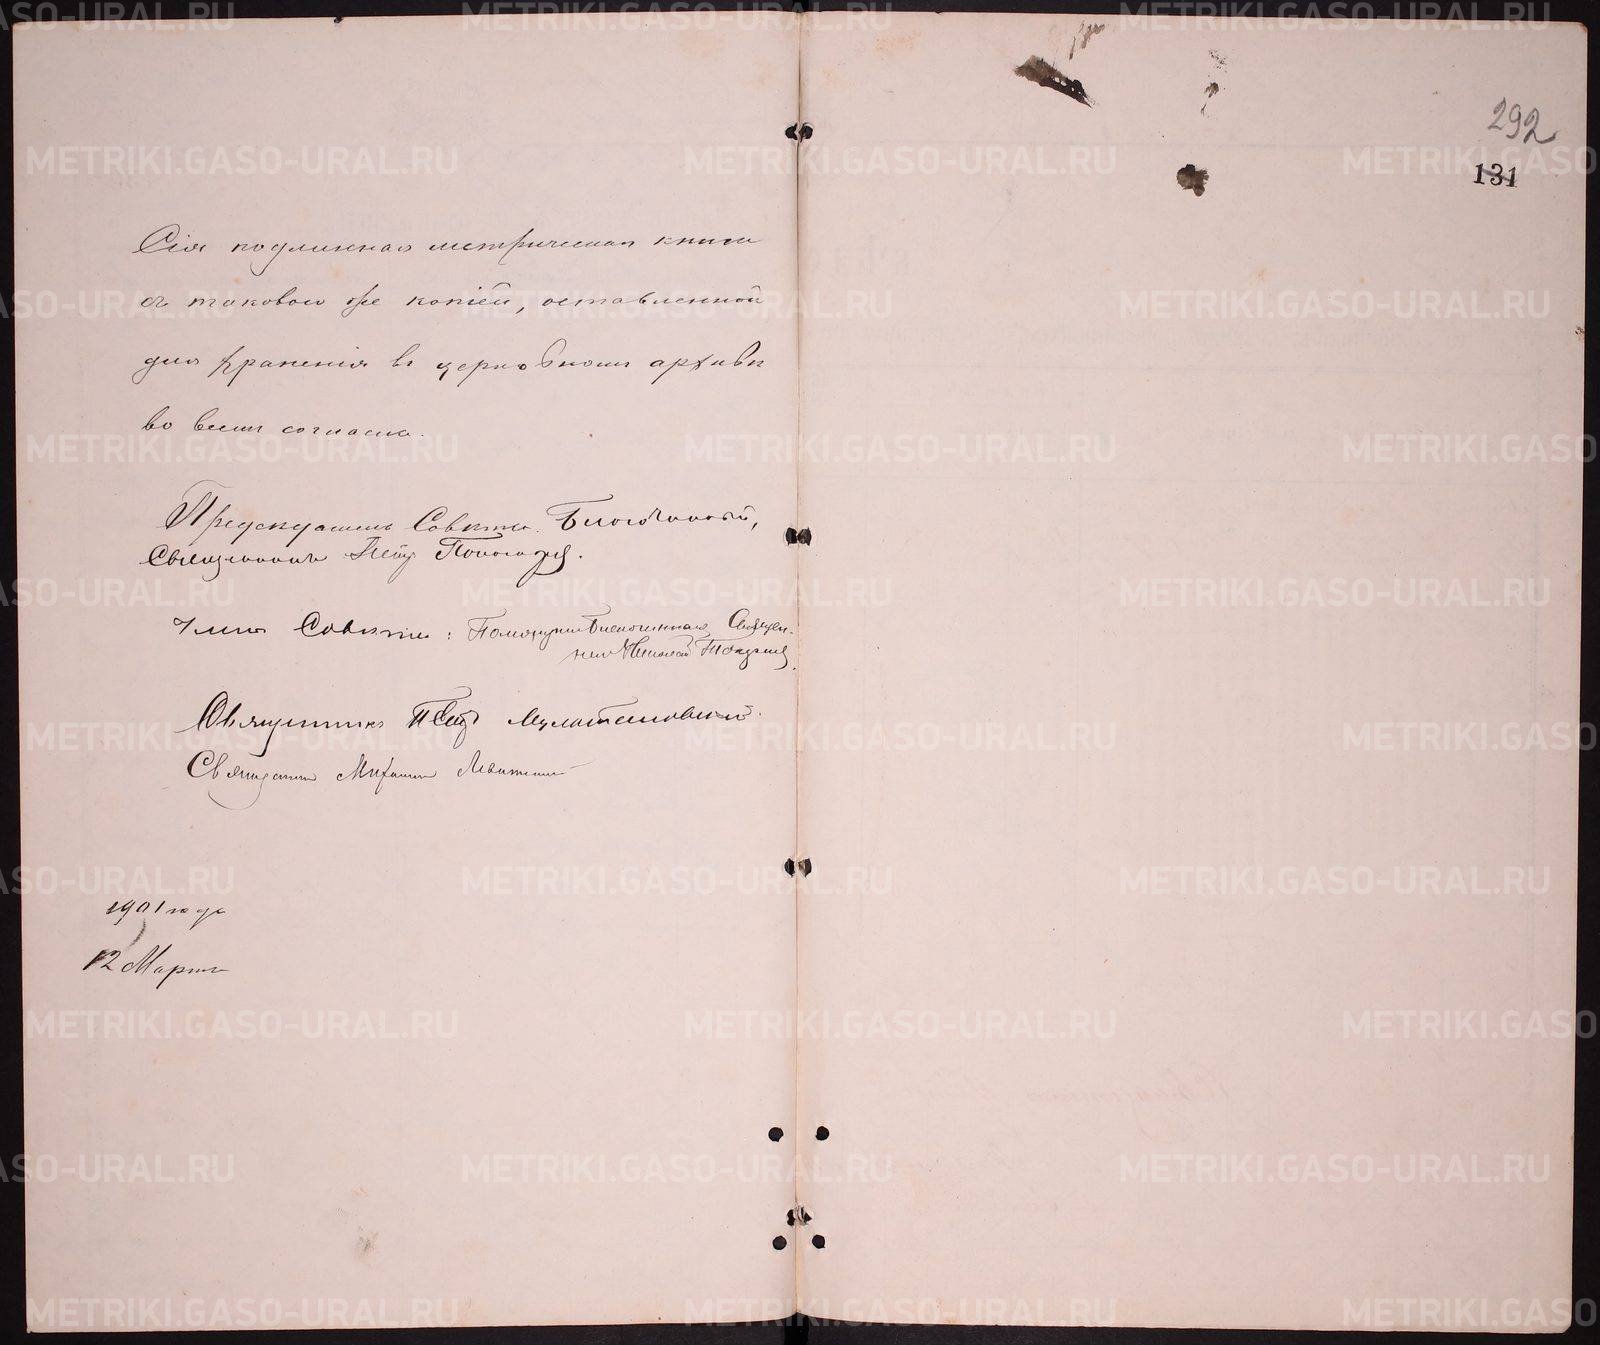 Сія подлинная метрическая книга
съ таковою же копіей, оставленной
для храненія въ церковномъ архивѣ
во всемъ согласна.
Предсѣдатель Совѣта Благочинный,
Священникъ Петръ
Члены Совѣта: Помощникъ Благочиннаго Священ-
никъ Николай
Священникъ Петръ
Священникъ Михаилъ
1901 года
12 Марта
292
131
METRIKI.GASO-URAL.RU